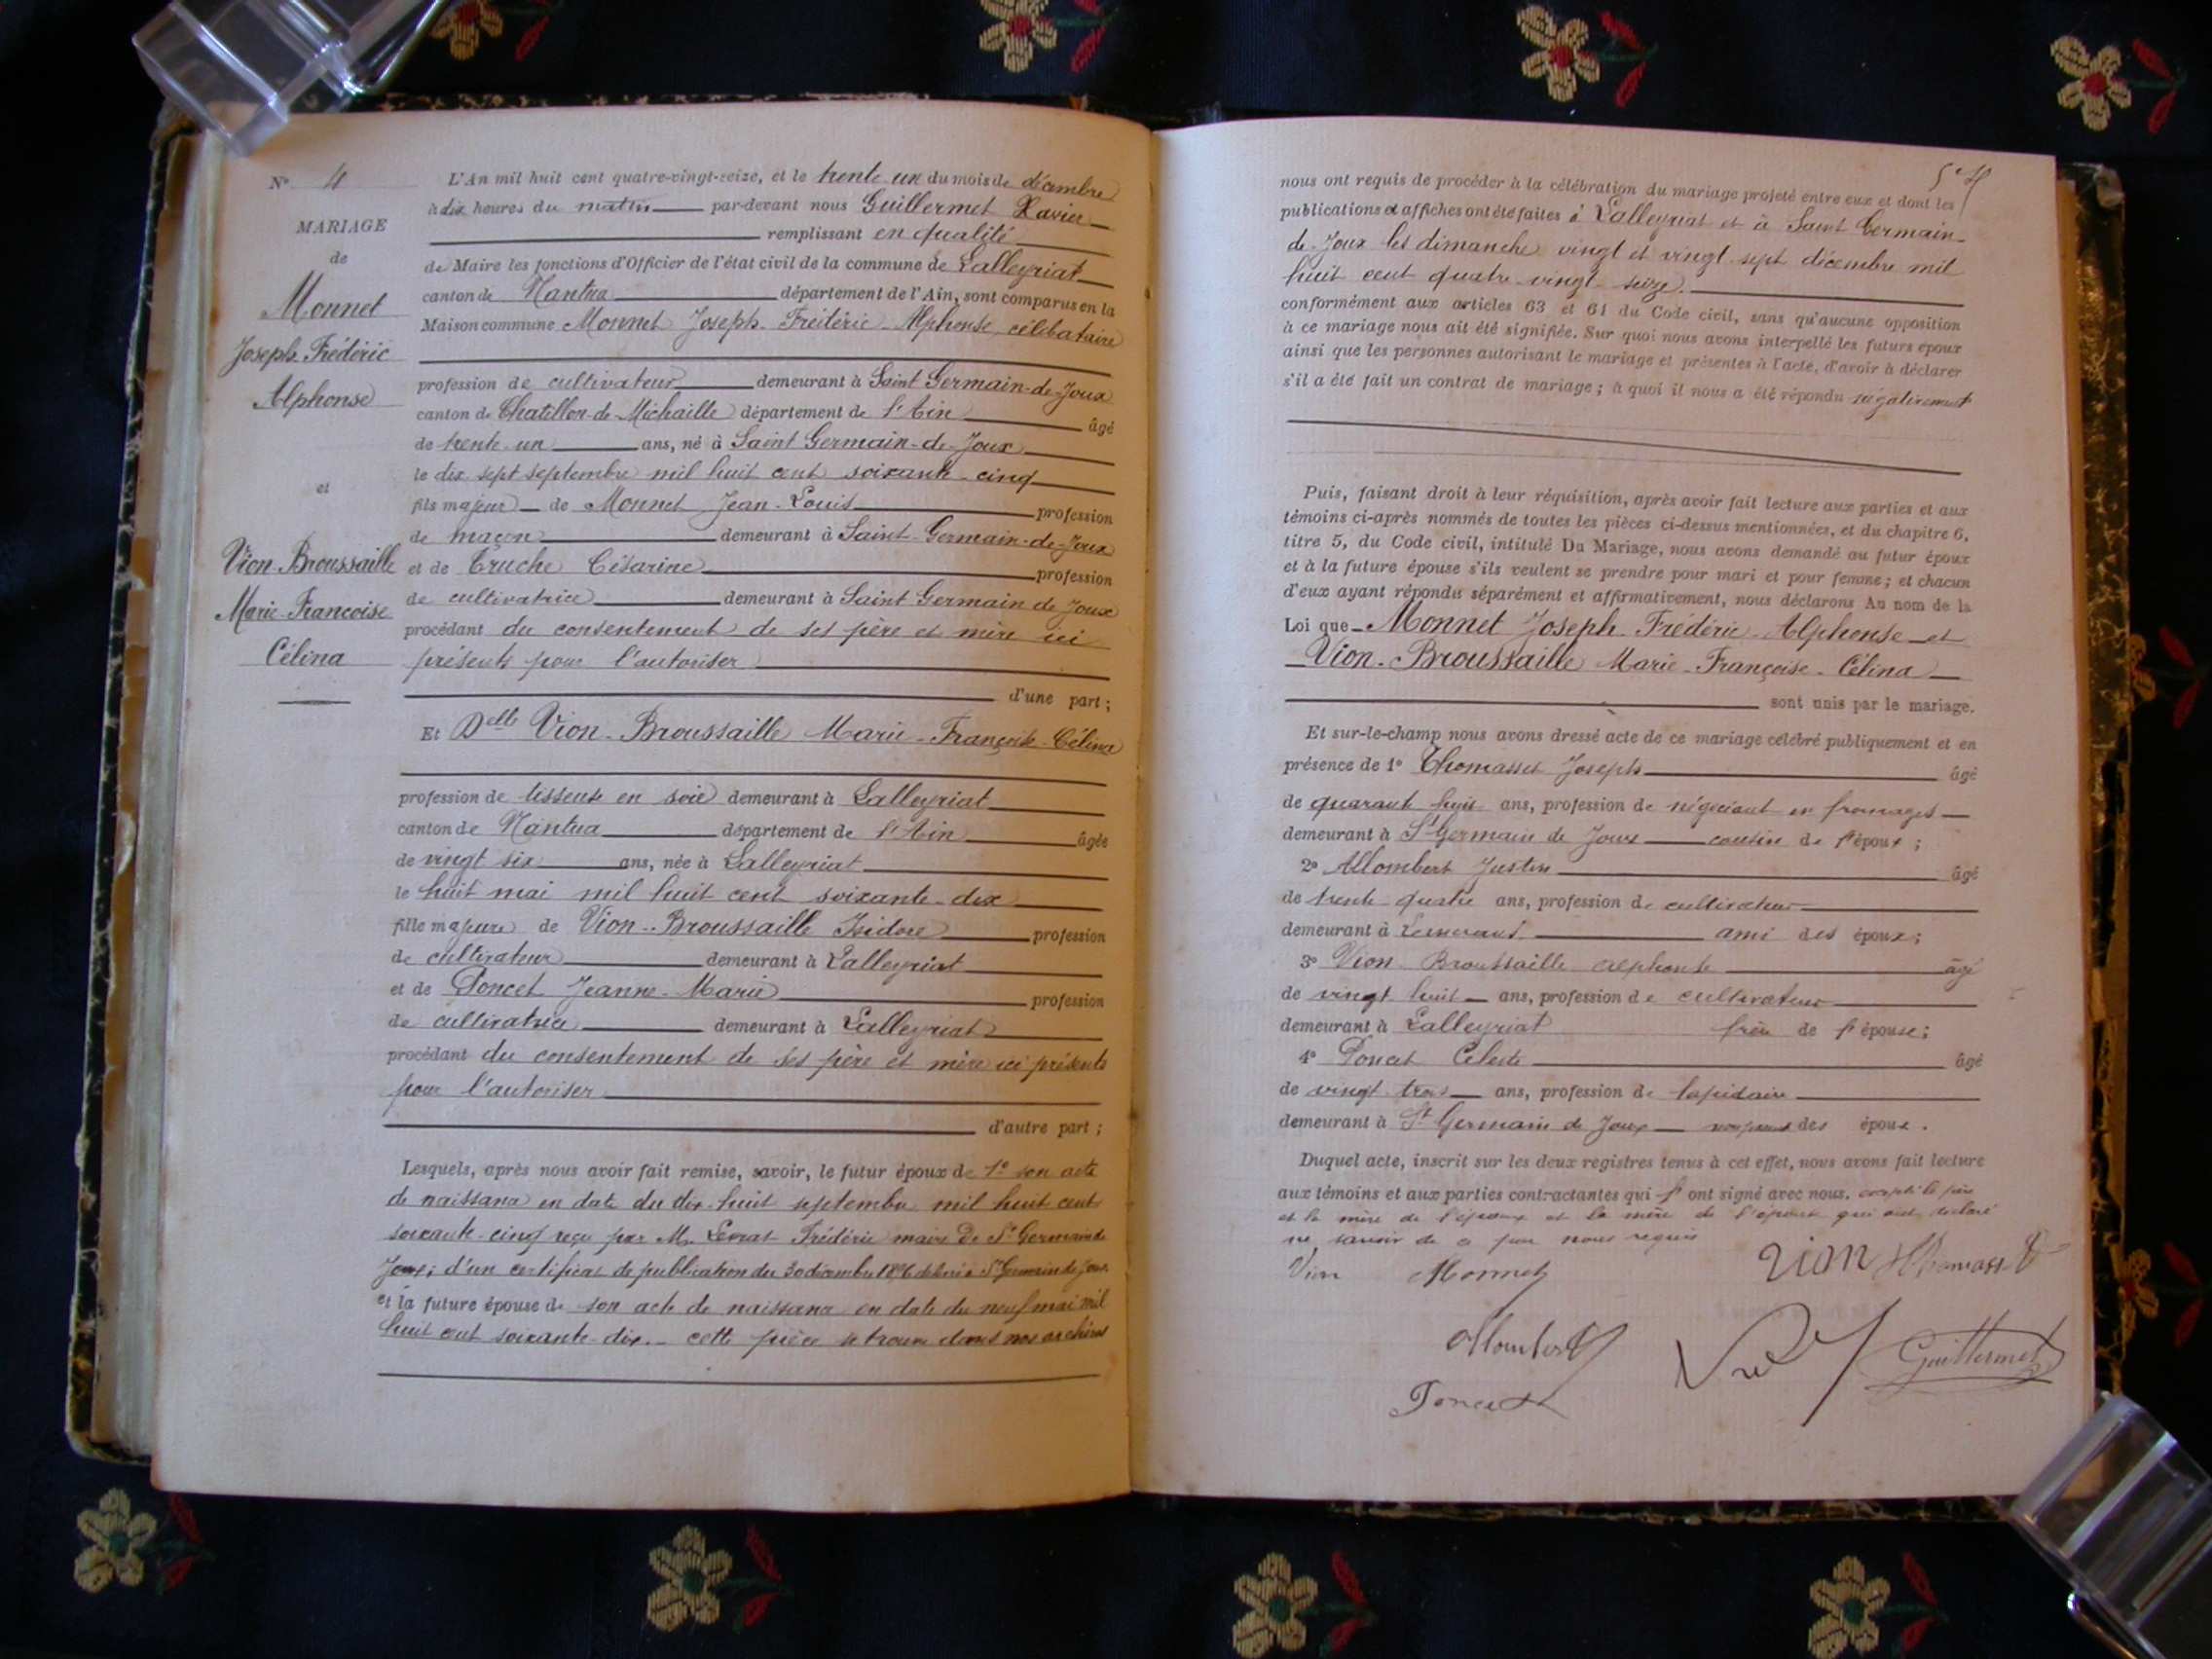 N° 4
MARIAGE
de
Monnet
Joseph-Frédéric
Alphonse
et
Vion-Broussaille
Marie-Francoise
Célina
L'An mil huit cent quatre-vingt-seize, et le trente un du mois de décembre
à dix heures du matin par-devant nous Guillermet Xavier
remplissant en qualité
de Maire les fonctions d'Officier de l'état civil de la commune de Lalleyriat
canton de Nantua département de l'Ain, sont comparus en la
Maison commune Monnet Joseph-Frédéric-Alphonse célibataire
profession de cultivateur demeurant à Saint Germain-de-Joux
canton de Chatillon-de-Michaille département de l'Ain âgé
de trente-un ans, né à Saint Germain-de-Joux
le dix-sept septembre mil huit cent soixante-cinq
fils majeur de Monnet Jean-Louis profession
de maçon demeurant à Saint-Germain-de-Joux
et de Truche Césarine profession
de cultivatrice demeurant à Saint Germain de Joux
procédant du consentement de ses père et mère ici
présents pour l'autoriser
d'une part;
Et Delle Vion-Broussaille Marie-Françoise-Célina
profession de tisseuse en soie demeurant à Lalleyriat
canton de Nantua département de l'Ain âgée
de vingt six ans, née à Lalleyriat
le huit mai mil huit cent soixante-dix
fille majeure de Vion-Broussaille Isidore profession
de cultivateur demeurant à Lalleyriat
et de Poncet Jeanne-Marie profession
de cultivatrice demeurant à Lalleyriat
procédant du consentement de ses père et mère ici présents
pour l'autoriser
d'autre part;
Lesquels, après nous avoir fait remise, savoir, le futur époux de 1° son acte
de naissance en date du dix-huit septembre mil huit cent
soixante-cinq reçu par M. Levrat Frédéric maire de St Germain de
Joux; d'un certificat de publication du 30 décembre 1896 délivré à St Germain de Joux
et la future épouse de son acte de naissance en date du neuf mai mil
huit cent soixante-dix.- cette pièce se trouve dans nos archives
nous ont requis de procéder à la célébration du mariage projeté entre eux et dont les
publications et affiches ont été faites à Lalleyriat et à Saint Germain-
de-Joux les dimanche vingt et vingt-sept décembre mil
huit cent quatre-vingt-seize.
conformément aux articles 63 et 64 du Code civil, sans qu'aucune opposition
à ce mariage nous ait été signifiée. Sur quoi nous avons interpellé les futurs époux
ainsi que les personnes autorisant le mariage et présentes à l'acte, d'avoir à déclarer
s'il a été fait un contrat de mariage; à quoi il nous a été répondu négativement
Puis, faisant droit à leur réquisition, après avoir fait lecture aux parties et aux
témoins ci-après nommés de toutes les pièces ci-dessus mentionnées, et du chapitre 6,
titre 5, du Code civil, intitulé Du Mariage, nous avons demandé au futur époux
et à la future épouse s'ils veulent se prendre pour mari et pour femme; et chacun
d'eux ayant répondu séparément et affirmativement, nous déclarons Au nom de la
Loi que Monnet Joseph-Frédéric-Alphonse et
Vion-Broussaille Marie-Françoise-Célina
sont unis par le mariage.
Et sur-le-champ nous avons dressé acte de ce mariage célébré publiquement et en
présence de 1° Thomasset Joseph âgé
de quarante huit ans, profession de négociant en fromages
demeurant à St Germain de Joux cousin de l'époux;
2° Allombert Justin âgé
de trente-quatre ans, profession de cultivateur
demeurant à ami des époux;
3° Vion-Broussaille Alphonse âgé
de vingt-huit ans, profession de cultivateur
demeurant à Lalleyriat frère de l'épouse;
4° Poncet Céleste âgé
de vingt-trois ans, profession de lapidaire
demeurant à St Germain de Joux des époux.
Duquel acte, inscrit sur les deux registres tenus à cet effet, nous avons fait lecture
aux témoins et aux parties contractantes qui l'ont signé avec nous, excepté le père
et la mère de l'époux et la mère de l'épouse qui ont déclaré
ne savoir de ce par nous requis
Vion Monnet Vion Thomasset
Allombert Guillermet
Poncet